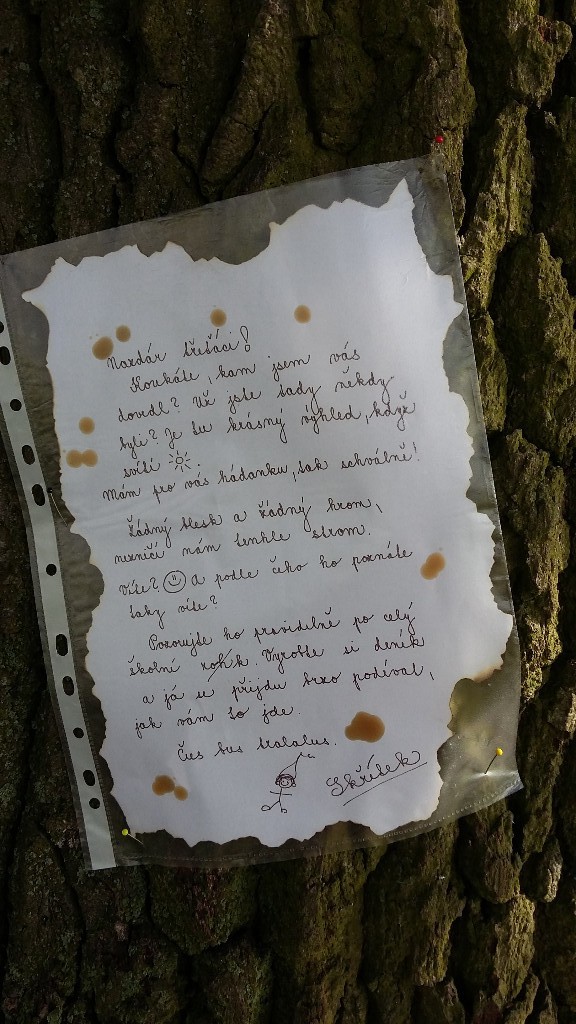 Nazdár třeťáci!
Koukáte, kam jsem vás
dovedl? Už jste tady někdy
byli? Je tu krásný výhled, když
svítí ☀.
Mám pro vás hádanku, tak schválně!
Žádný blesk a žádný hrom,
nezničí nám tenhle strom.
Víte? ☺ A podle čeho ho poznáte
taky víte?
Pozorujte ho pravidelně po celý
školní rok. Vyrobte si deník
a já se přijdu brzo podívat,
jak vám to jde.
Čus bus tralalus.
Skřítek